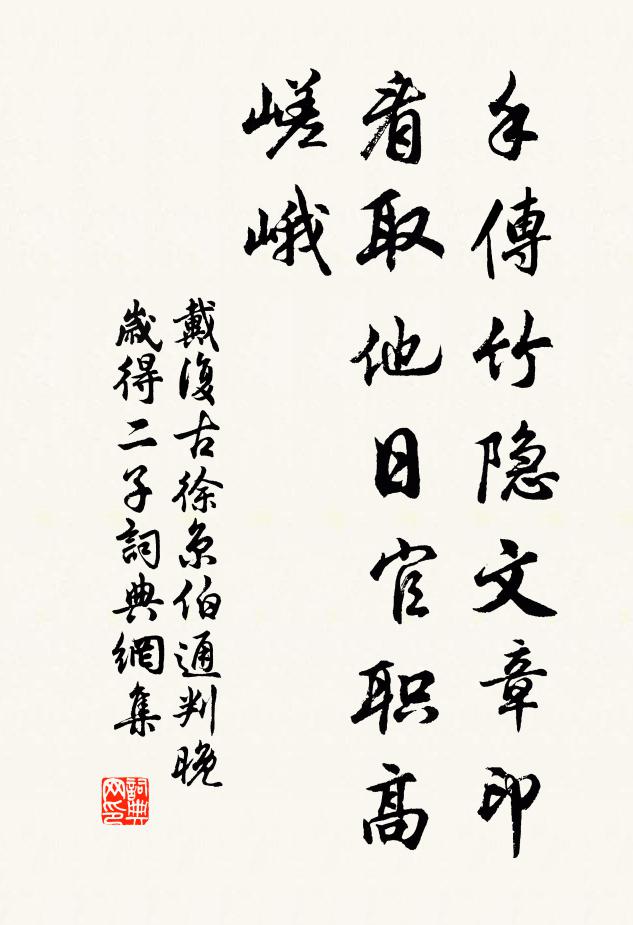 手傳竹隐文章印
看取他日官职高
嵯峨
戴復古徐京伯通判晚
歲得二子詞典網集
詞典网印